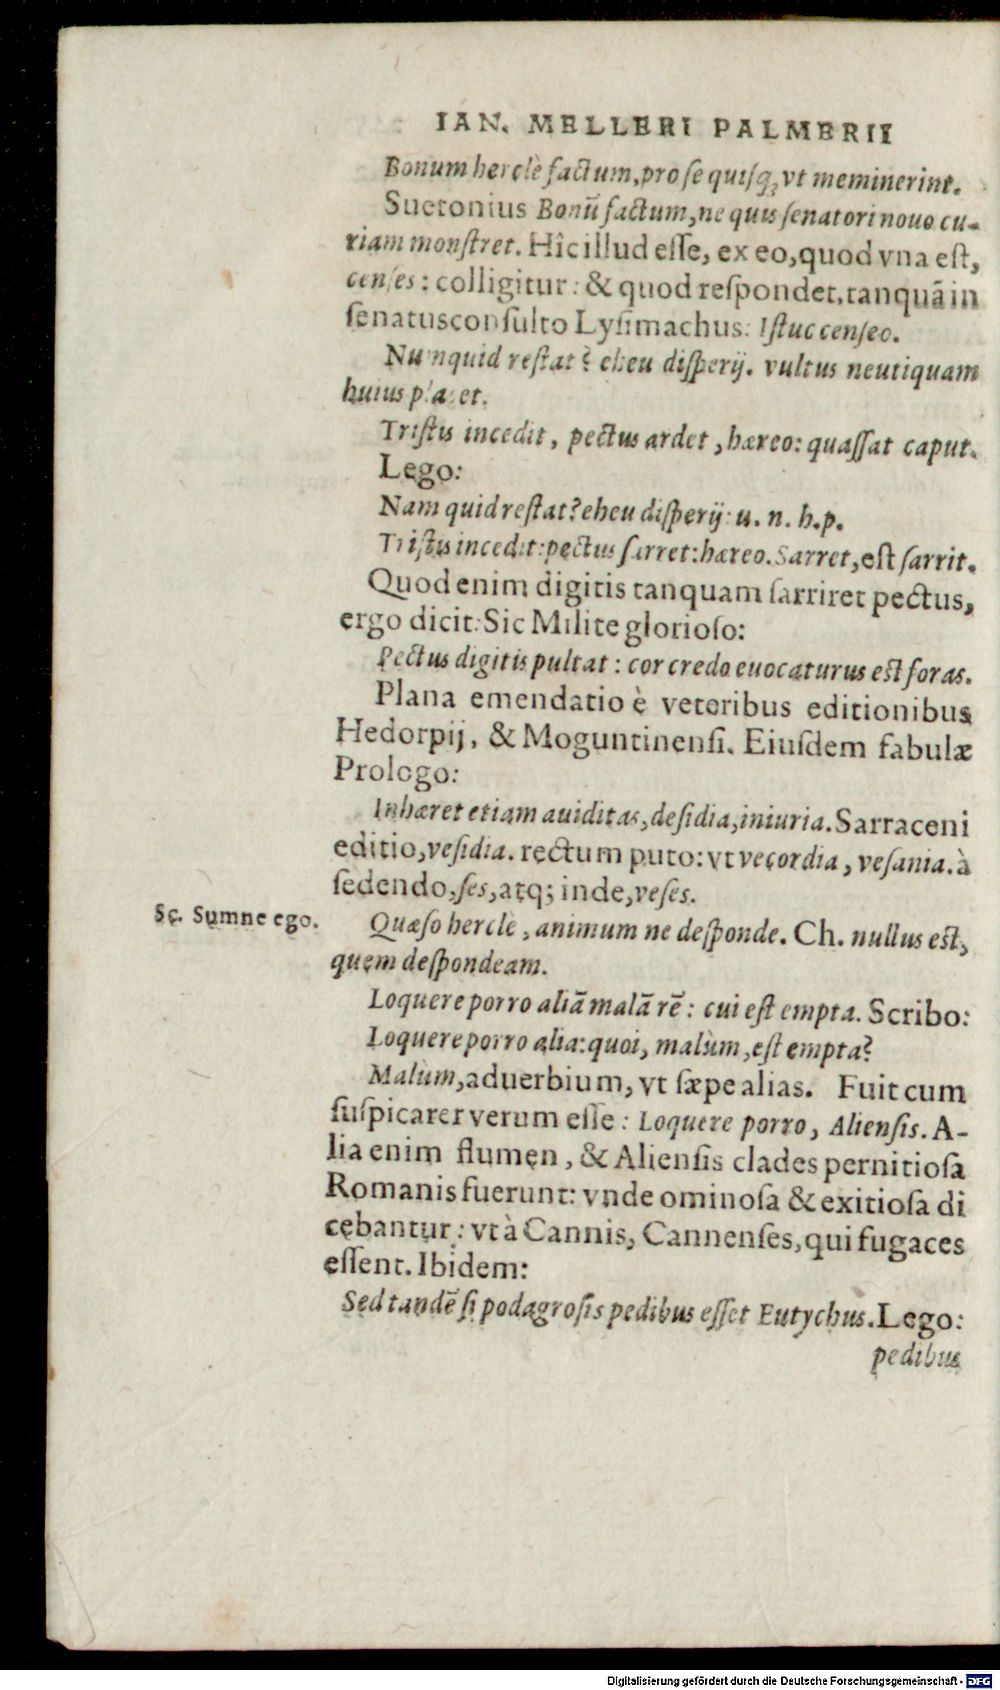 IAN. MELLERI PALMERII
Bonum herclè factum, pro se quisq; vt meminerint.
Suetonius Bonũ factum, ne quis senatori nouo cu-
riam monstret. Hîc illud esse, ex eo, quod vna est,
censes: colligitur: & quod respondet, tanquã in
senatusconsulto Lysimachus: Istuc censeo.
Numquid restat? eheu disperij. vultus neutiquam
huius placet.
Tristis incedit, pectus ardet, hæreo: quassat caput.
Lego:
Nam quid restat? eheu disperij: u. n. h. p.
Tristis incedit: pectus sarret: hæreo. Sarret, est sarrit.
Quod enim digitis tanquam sarriret pectus,
ergo dicit: Sic Milite glorioso:
Pectus digitis pultat: cor credo euocaturus est foras.
Plana emendatio è veteribus editionibus
Hedorpij, & Moguntinensi. Eiusdem fabulæ
Prologo:
Inhæret etiam auiditas, desidia, iniuria. Sarraceni
editio, vesidia. rectum puto: vt vecordia, vesania. à
sedendo, ses, atq; inde, veses.
Sc. Sumne ego.
Quæso hercle, animum ne desponde. Ch. nullus est,
quem despondeam.
Loquere porro aliã malã rẽ: cui est empta. Scribo:
Loquere porro alia: quoi, malùm, est empta?
Malùm, aduerbium, vt sæpe alias. Fuit cum
suspicarer verum esse: Loquere porro, Aliensis. A-
lia enim flumen, & Aliensis clades pernitiosa
Romanis fuerunt: vnde ominosa & exitiosa di
cebantur: vt à Cannis, Cannenses, qui fugaces
essent. Ibidem:
Sed tandẽ si podagrosis pedibus esset Eutychus. Lego:
pedibus
Digitalisierung gefördert durch die Deutsche Forschungsgemeinschaft - DFG